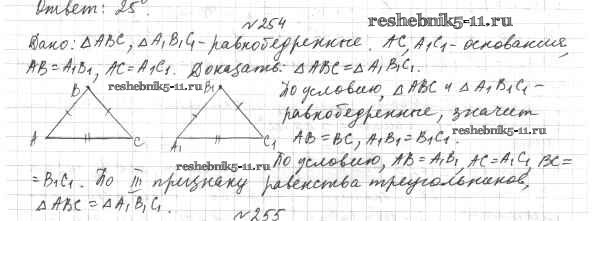 Ответ: 25°.
№254
reshebnik5-11.ru
Дано: △ABC, △A₁B₁C₁ - равнобедренные. AC, A₁C₁ - основания,
AB = A₁B₁, AC = A₁C₁. Доказать: △ABC = △A₁B₁C₁.
B reshebnik5-11.ru B₁ По условию, △ABC и △A₁B₁C₁ -
равнобедренные, значит
A C A₁ C₁ AB = BC, A₁B₁ = B₁C₁.
reshebnik5-11.ru
reshebnik5-11.ru По условию, AB = A₁B₁, AC = A₁C₁, BC =
= B₁C₁. По III признаку равенства треугольников,
△ABC = △A₁B₁C₁.
№255